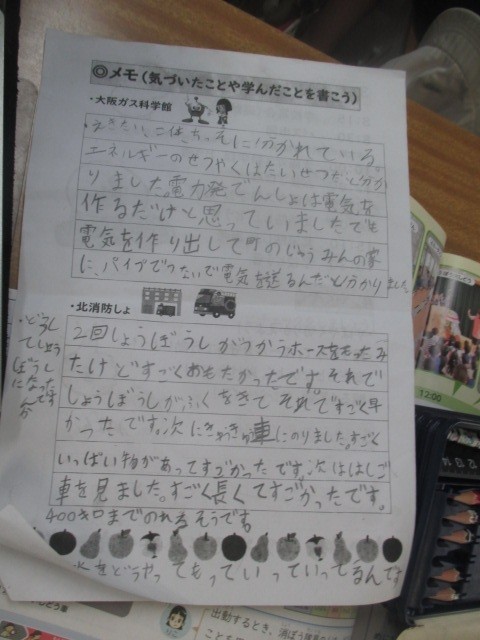 ◎メモ（気づいたことや学んだことを書こう）
・大阪ガス科学館
・えきたい、こ体、ちっそに分かれている。
エネルギーのせつやくはたいせつだと分か
りました。電力発でんしょは電気を
作るだけと思っていましたでも
電気を作り出して町のじゅうみんの家
に、パイプでつないで電気を送るんだと分かりました
・北消防しょ
2回しょうぼうしがつかうホースをもったみ
たけどすごくおもたかったです。それで
しょうぼうしがふくをきてそれですごく早
かったです。次にきゅうきゅう車にのりました。すごく
いっぱい物があってすごかったです。次ははしご
車を見ました。すごく長くてすごかったです。
400キロまでのれるそうです
・どうし
てしょう
ぼうし
になった
んです
か
水をどうやってもっていっているんです
12:00
出動するとき、消ぼう